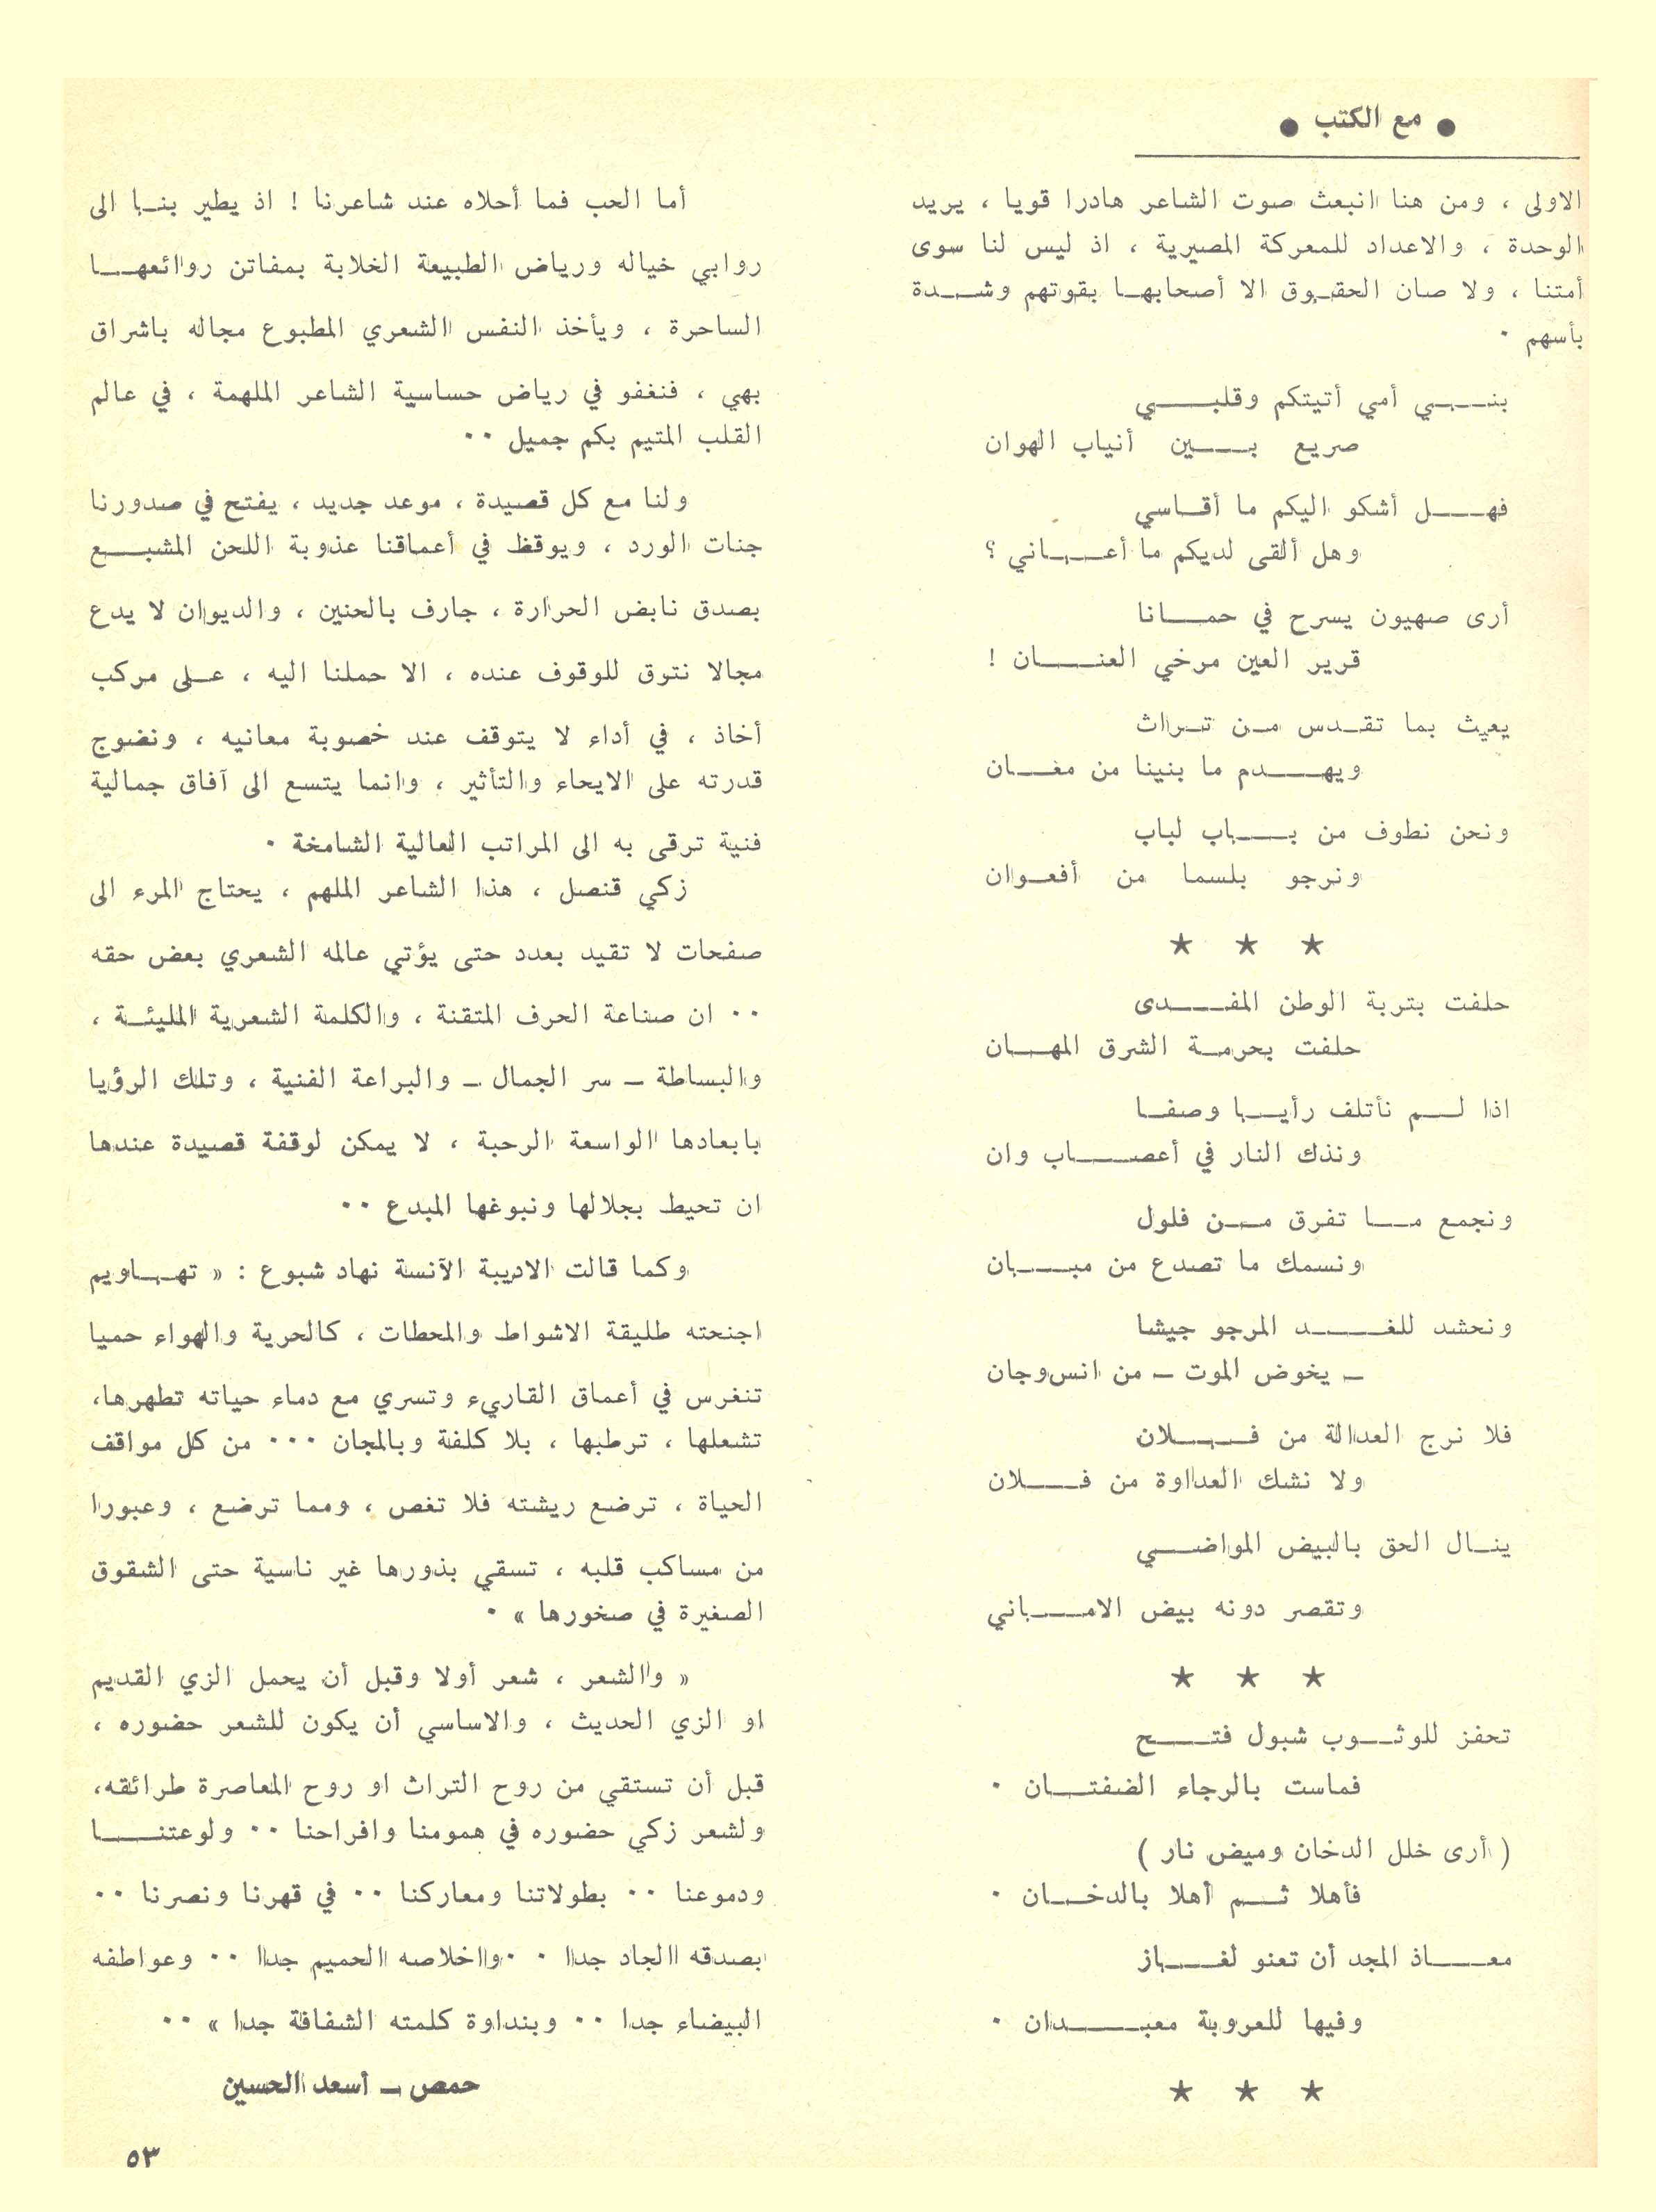 ● مع الكتب ●
الاولى ، ومن هنا انبعث صوت الشاعر هادرا قويا ، يريد
الوحدة ، والاعداد للمعركة المصيرية ، اذ ليس لنا سوى
أمتنا ، ولا صان الحقوق الا أصحابها بقوتهم وشدة
بأسهم ٠
بني أمي أتيتكم وقلبي
صريع بين أنياب الهوان
فهل أشكو اليكم ما أقاسي
وهل ألقى لديكم ما أعاني ؟
أرى صهيون يسرح في حمانا
قرير العين مرخي العنان !
يعيث بما تقدس من تراث
ويهدم ما بنينا من مغان
ونحن نطوف من باب لباب
ونرجو بلسما من أفعوان
★ ★ ★
حلفت بتربة الوطن المفدى
حلفت بحرمة الشرق المهان
اذا لم نأتلف رأيا وصفا
ونذك النار في أعصاب وان
ونجمع ما تفرق من فلول
ونسمك ما تصدع من مبان
ونحشد للغد المرجو جيشا
ـ يخوض الموت ـ من انس وجان
فلا نرج العدالة من فلان
ولا نشك العداوة من فلان
ينال الحق بالبيض المواضي
وتقصر دونه بيض الاماني
★ ★ ★
تحفز للوثوب شبول فتح
فماست بالرجاء الضفتان ٠
( أرى خلل الدخان وميض نار )
فأهلا ثم أهلا بالدخان ٠
معاذ المجد أن تعنو لغاز
وفيها للعروبة معبدان ٠
★ ★ ★
أما الحب فما أحلاه عند شاعرنا ! اذ يطير بنا الى
روابي خياله ورياض الطبيعة الخلابة بمفاتن روائعها
الساحرة ، ويأخذ النفس الشعري المطبوع مجاله باشراق
بهي ، فنغفو في رياض حساسية الشاعر الملهمة ، في عالم
القلب المتيم بكم جميل ٠٠
ولنا مع كل قصيدة ، موعد جديد ، يفتح في صدورنا
جنات الورد ، ويوقظ في أعماقنا عذوبة اللحن المشبع
بصدق نابض الحرارة ، جارف بالحنين ، والديوان لا يدع
مجالا نتوق للوقوف عنده ، الا حملنا اليه ، على مركب
أخاذ ، في أداء لا يتوقف عند خصوبة معانيه ، ونضوج
قدرته على الايحاء والتأثير ، وانما يتسع الى آفاق جمالية
فنية ترقى به الى المراتب العالية الشامخة ٠
زكي قنصل ، هذا الشاعر الملهم ، يحتاج المرء الى
صفحات لا تقيد بعدد حتى يؤتي عالمه الشعري بعض حقه
٠٠ ان صناعة الحرف المتقنة ، والكلمة الشعرية المليئة ،
والبساطة ـ سر الجمال ـ والبراعة الفنية ، وتلك الرؤيا
بابعادها الواسعة الرحبة ، لا يمكن لوقفة قصيدة عندها
ان تحيط بجلالها ونبوغها المبدع ٠٠
وكما قالت الاديبة الآنسة نهاد شبوع : « تهاويم
اجنحته طليقة الاشواط والمحطات ، كالحرية والهواء حميا
تنغرس في أعماق القاريء وتسري مع دماء حياته تطهرها،
تشعلها ، ترطبها ، بلا كلفة وبالمجان ٠٠٠ من كل مواقف
الحياة ، ترضع ريشته فلا تغص ، ومما ترضع ، وعبورا
من مساكب قلبه ، تسقي بذورها غير ناسية حتى الشقوق
الصغيرة في صخورها » ٠
« والشعر ، شعر أولا وقبل أن يحمل الزي القديم
او الزي الحديث ، والاساسي أن يكون للشعر حضوره ،
قبل أن تستقي من روح التراث او روح المعاصرة طرائقه،
ولشعر زكي حضوره في همومنا وافراحنا ٠٠ ولوعتنا
ودموعنا ٠٠ بطولاتنا ومعاركنا ٠٠ في قهرنا ونصرنا ٠٠
بصدقه الجاد جدا ٠ ٠واخلاصه الحميم جدا ٠٠ وعواطفه
البيضاء جدا ٠٠ وبنداوة كلمته الشفافة جدا » ٠٠
حمص ـ أسعد الحسين
٥٣